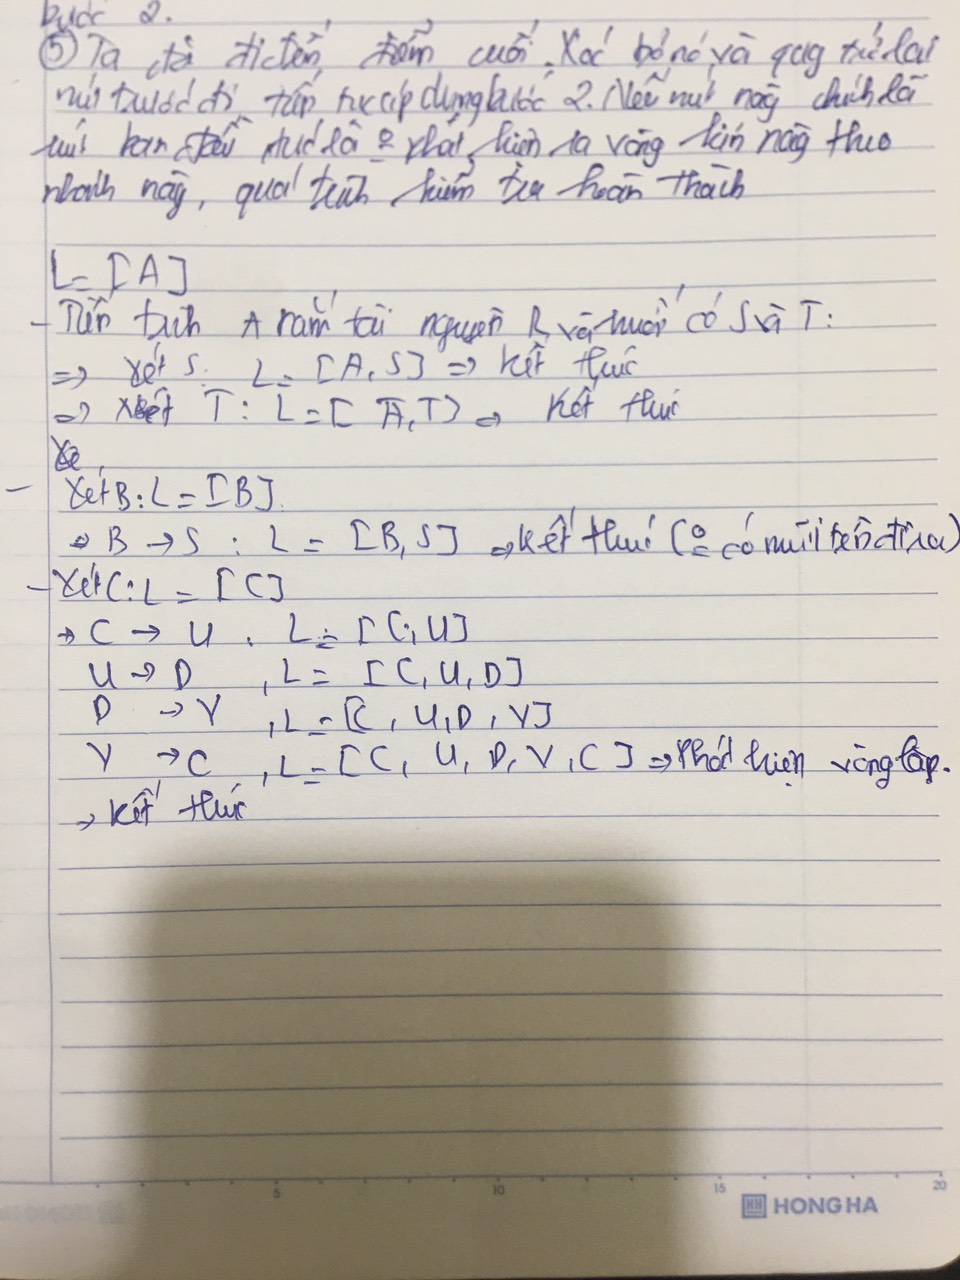 bước 2.
⑤ Ta đã đi đến điểm cuối. Xoá bỏ nó và quay trở lại
nút trước đó, tiếp tục áp dụng bước 2. Nếu nút này chính là
nút ban đầu tức là o phát hiện ra vòng kín nào theo
nhánh này, quá trình kiểm tra hoàn thành
L = [A]
- Tiến trình A nắm tài nguyên R và muốn có S và T:
=> xét S: L = [A, S] => Kết thúc
=> xét T: L = [A, T] => Kết thúc
Xé
- Xét B: L = [B]
=> B → S : L = [B, S] => Kết thúc (o có mũi tên đi ra)
- Xét C: L = [C]
→ C → U : L = [C, U]
U → D , L = [C, U, D]
D → V , L = [C, U, D, V]
V → C , L = [C, U, D, V, C] => Phát hiện vòng lặp.
→ Kết thúc
5 10 15 20
HONG HA